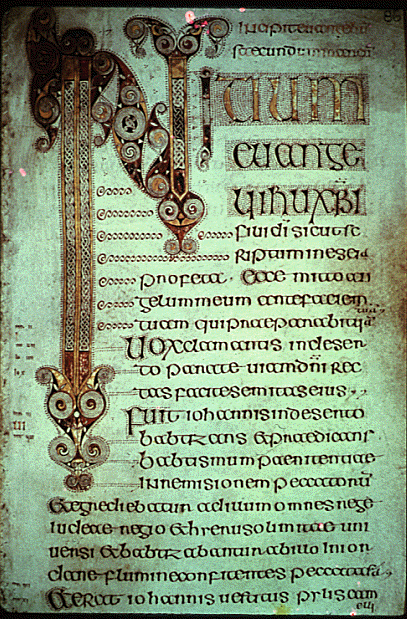 86
Incipit euangeliu
secundum
INITIUM
euange
lii ihu xpi
filii di sicut sc
riptum in eseia
profeta. Ecce mitto an
gelum meum ante faciem
tuam qui praeparabit uiam
Uox clamantis in deser
to parate uiam dni rec
tas facite semitas eius
Fuit iohannis in deserto
babtizans et praedicans
babtismum paenitentiae
in remisionem peccatorum
Et egrediebatur ad illum omnes rege
iudeae regio et hierusolimitae uni
uersi et babtizabantur ab illo in ior
dane flumine confitentes peccata sua
Et erat iohannis uestitus pylis cam
eli